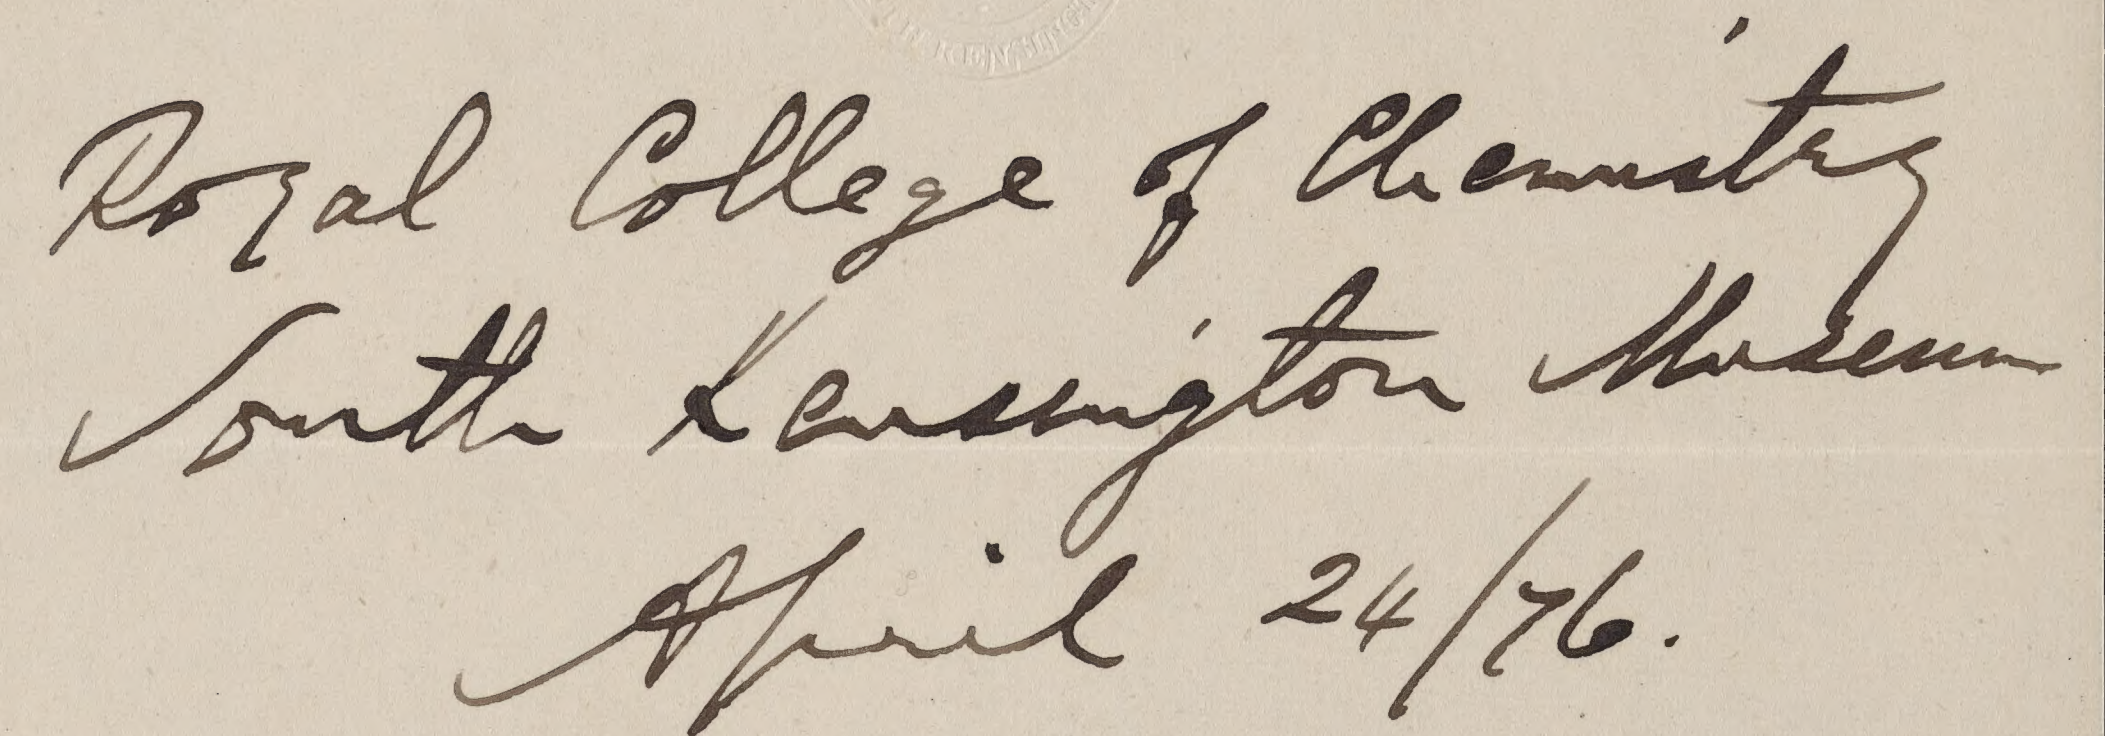 Royal College of Chemistry
South Kensington Museum
April 24/76.